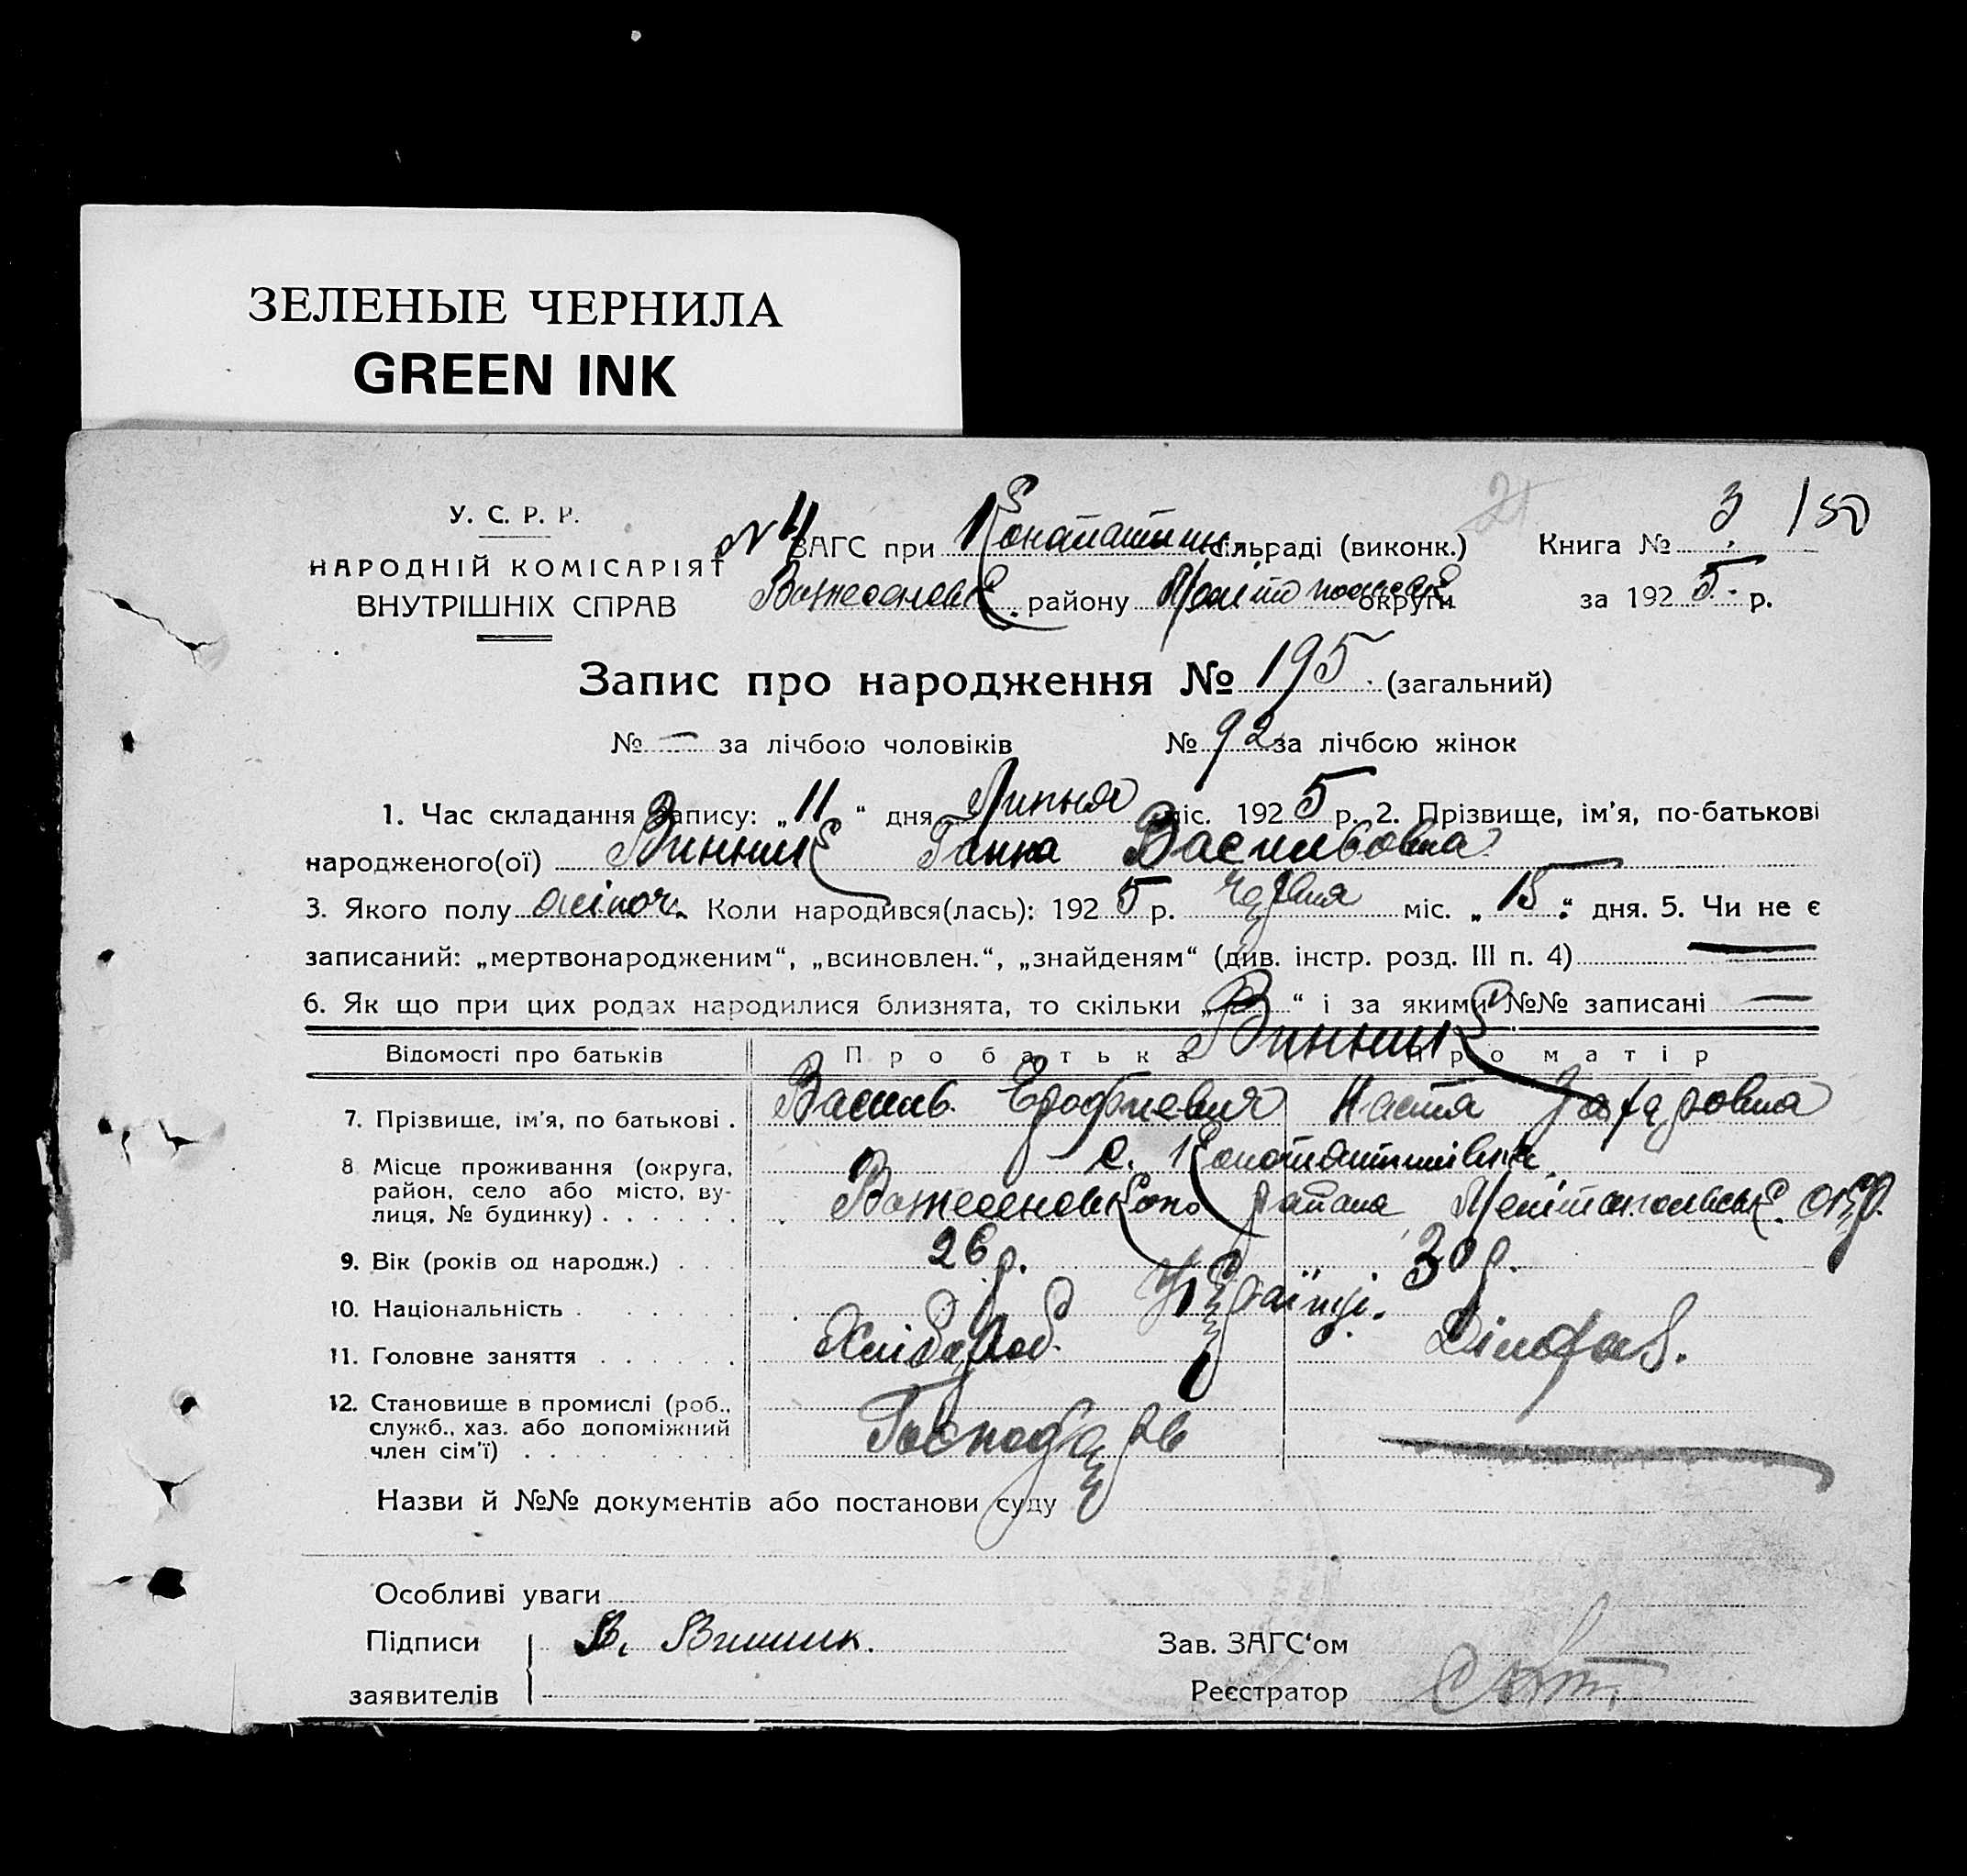 ЗЕЛЕНЫЕ ЧЕРНИЛА
GREEN INK
У. С. Р. Р.
НАРОДНІЙ КОМІСАРІЯТ
ВНУТРІШНІХ СПРАВ
ЗАГС при Констатин. сільраді (виконк.) Книга № 3 150
району округи за 1925 р.
Запис про народження № 195 (загальний)
№ — за лічбою чоловіків № 92 за лічбою жінок
1. Час складання запису: „11“ дня Липня міс. 1925 р. 2. Прізвище, ім'я, по-батькові
народженого(ої) Винник Ганна Васильовна
3. Якого полу жіноч. Коли народився(лась): 1925 р. червня міс. „15“ дня. 5. Чи не є
записаний: „мертвонародженим“, „всиновлен.“, „знайденям“ (див. інстр. розд. III п. 4) —
6. Як що при цих родах народилися близнята, то скільки „ “ і за якими №№ записані —
Відомості про батьків Про батька Про матір
Винник
7. Прізвище, ім'я, по батькові . Василь Настя
8 Місце проживання (округа, район, село або місто, ву-
лиця, № будинку) . . . . . .
с. Константинівка
району окр.
9. Вік (років од народж.) . . . 26 р. 30 р.
10. Національність . . . . . . Українці.
11. Головне заняття . . . . . . Хлібороб.
12. Становище в промислі (роб.,
служб., хаз. або допоміжний
член сім'ї) . . . . . . Господарь
Назви й №№ документів або постанови суду
Особливі уваги
Підписи В. Винник. Зав. ЗАГС'ом
заявителів Реєстратор